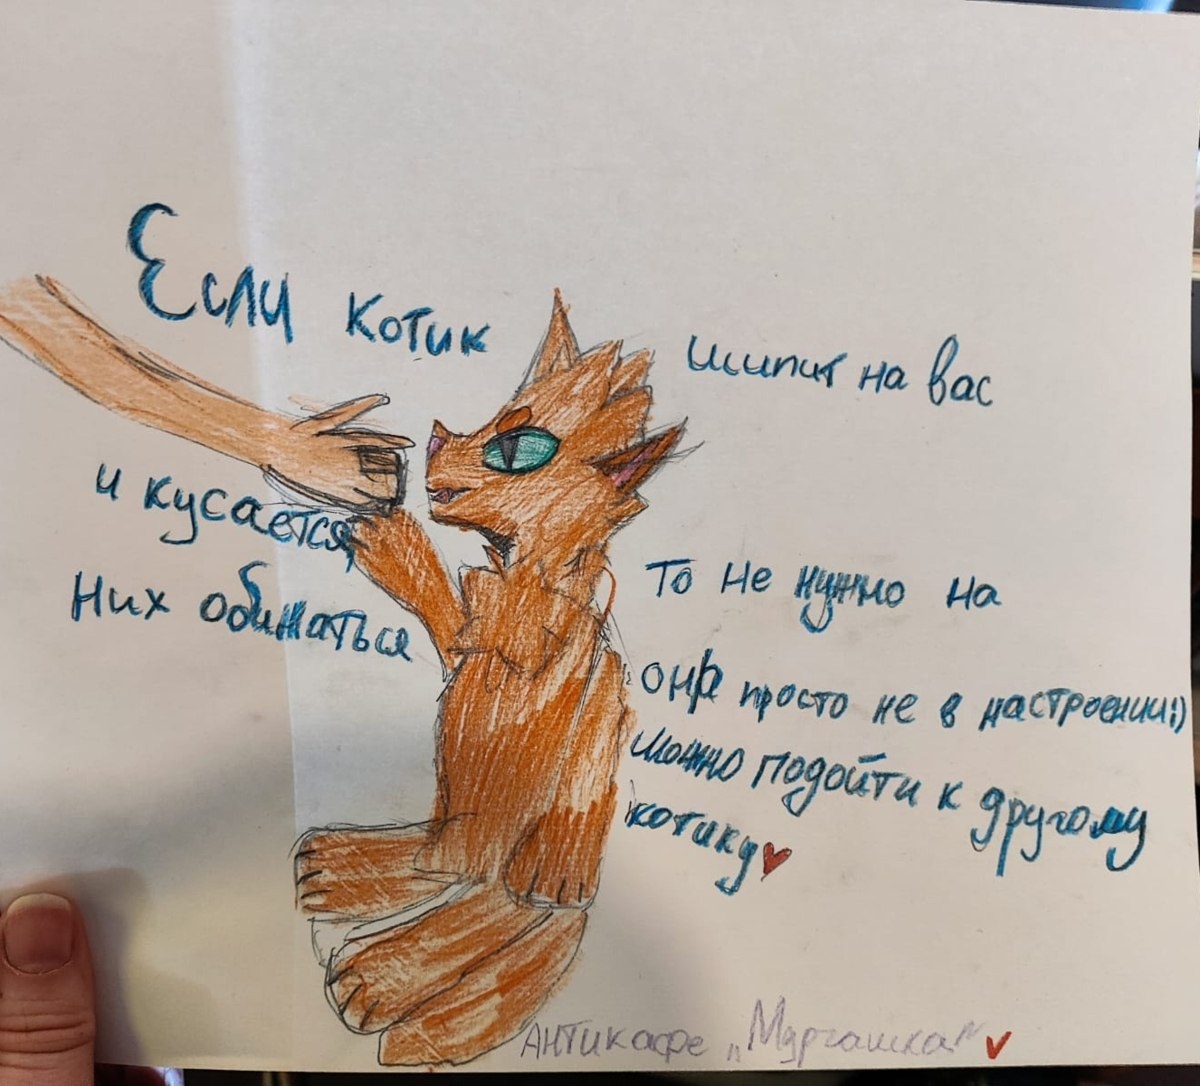 Если котик шипит на вас
и кусается, то не нужно на
них обижаться она просто не в настроении:)
можно подойти к другому
котику
Антикафе „Мургашка"